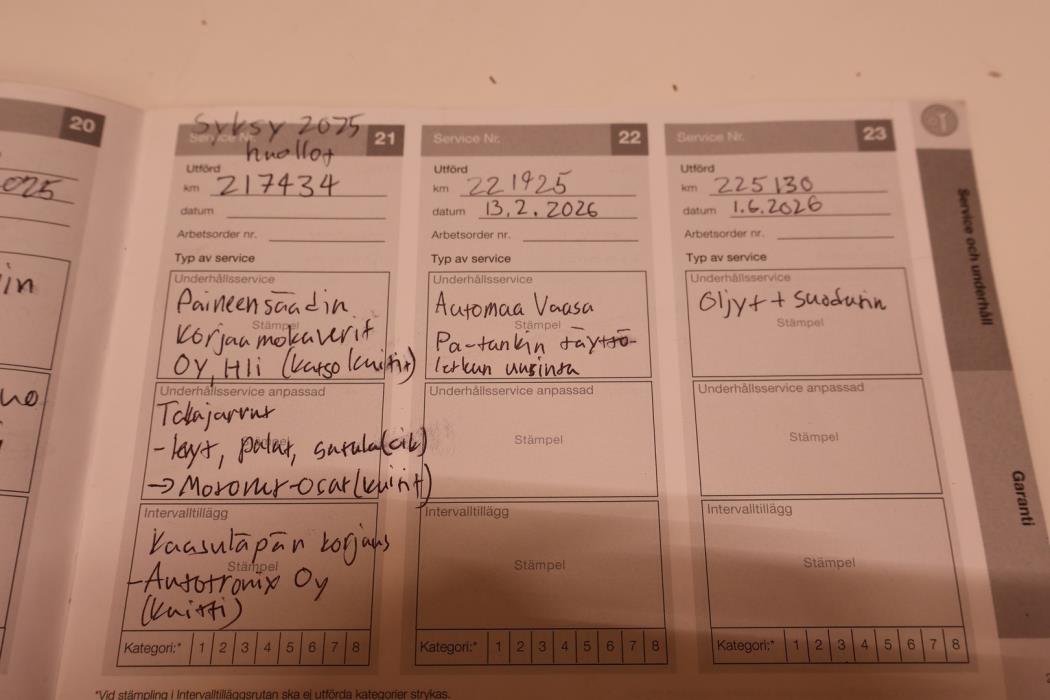 20
025
in
no
Syksy 2025
Service Nr.
21
huollot
Utförd
km 217434
datum
Arbetsorder nr.
Typ av service
Underhållsservice
Paineensäädin
Stämpel
Korjaamokaverit
OY, HLi (katso kuitit)
Underhållsservice anpassad
Takajarrut
- levyt, palat, satula(oik)
→ Motonet-osat (kuitit)
Intervalltillägg
Kaasuläpän korjaus
Stämpel
- Autotronix Oy
(kuitti)
Kategori:* 1 2 3 4 5 6 7 8
Service Nr. 22
Utförd
km 221925
datum 13.2.2026
Arbetsorder nr.
Typ av service
Underhållsservice
Automaa Vaasa
Stämpel
Pa-tankin täyttö-
letkun uusinta
Underhållsservice anpassad
Stämpel
Intervalltillägg
Stämpel
Kategori:* 1 2 3 4 5 6 7 8
Service Nr. 23
Utförd
km 225130
datum 1.6.2026
Arbetsorder nr.
Typ av service
Underhållsservice
Öljyt + suodatin
Stämpel
Underhållsservice anpassad
Stämpel
Intervalltillägg
Stämpel
Kategori:* 1 2 3 4 5 6 7 8
Service och underhåll
Garanti
*Vid stämpling i Intervalltilläggsrutan ska ej utförda kategorier strykas.